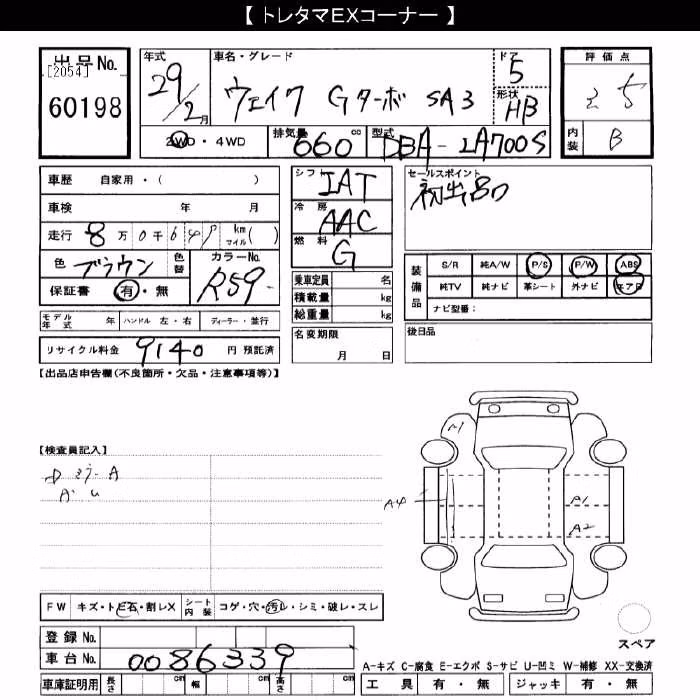 【 トレタマEXコーナー 】
出品No.
[2054]
60198
年式
29/2月
車名・グレード
ウェイク Gターボ SA3
ドア
5
形状
HB
2WD・4WD
排気量
660 cc
型式
DBA-LA700S
評価点
5
内装
B
車歴 自家用・( )
車検 年 月
走行 8万0千649 km マイル( )
色 ブラウン
色替
カラーNo.
R59
保証書 有・無
モデル年式 年 ハンドル 左・右 ディーラー・並行
リサイクル料金 9140 円 預託済
シフト
IAT
冷房
AAC
燃料
G
乗車定員 名
積載量 kg
総重量 kg
名変期限
月 日
セールスポイント
初出品
装備品
S/R 純A/W P/S P/W ABS
純TV 純ナビ 革シート 外ナビ エアB
ナビ型番:
後日品
【出品店申告欄(不良箇所・欠品・注意事項等)】
【検査員記入】
A1
A4
A1
A2
FW キズ・トビ石・割レX シート内装 コゲ・穴・汚レ・シミ・破レ・スレ
登録No.
車台No. 0086339
車庫証明用 長さ cm 幅 cm 高さ cm
スペア
A-キズ C-腐食 E-エクボ S-サビ U-凹ミ W-補修 XX-交換済
工具 有・無 ジャッキ 有・無